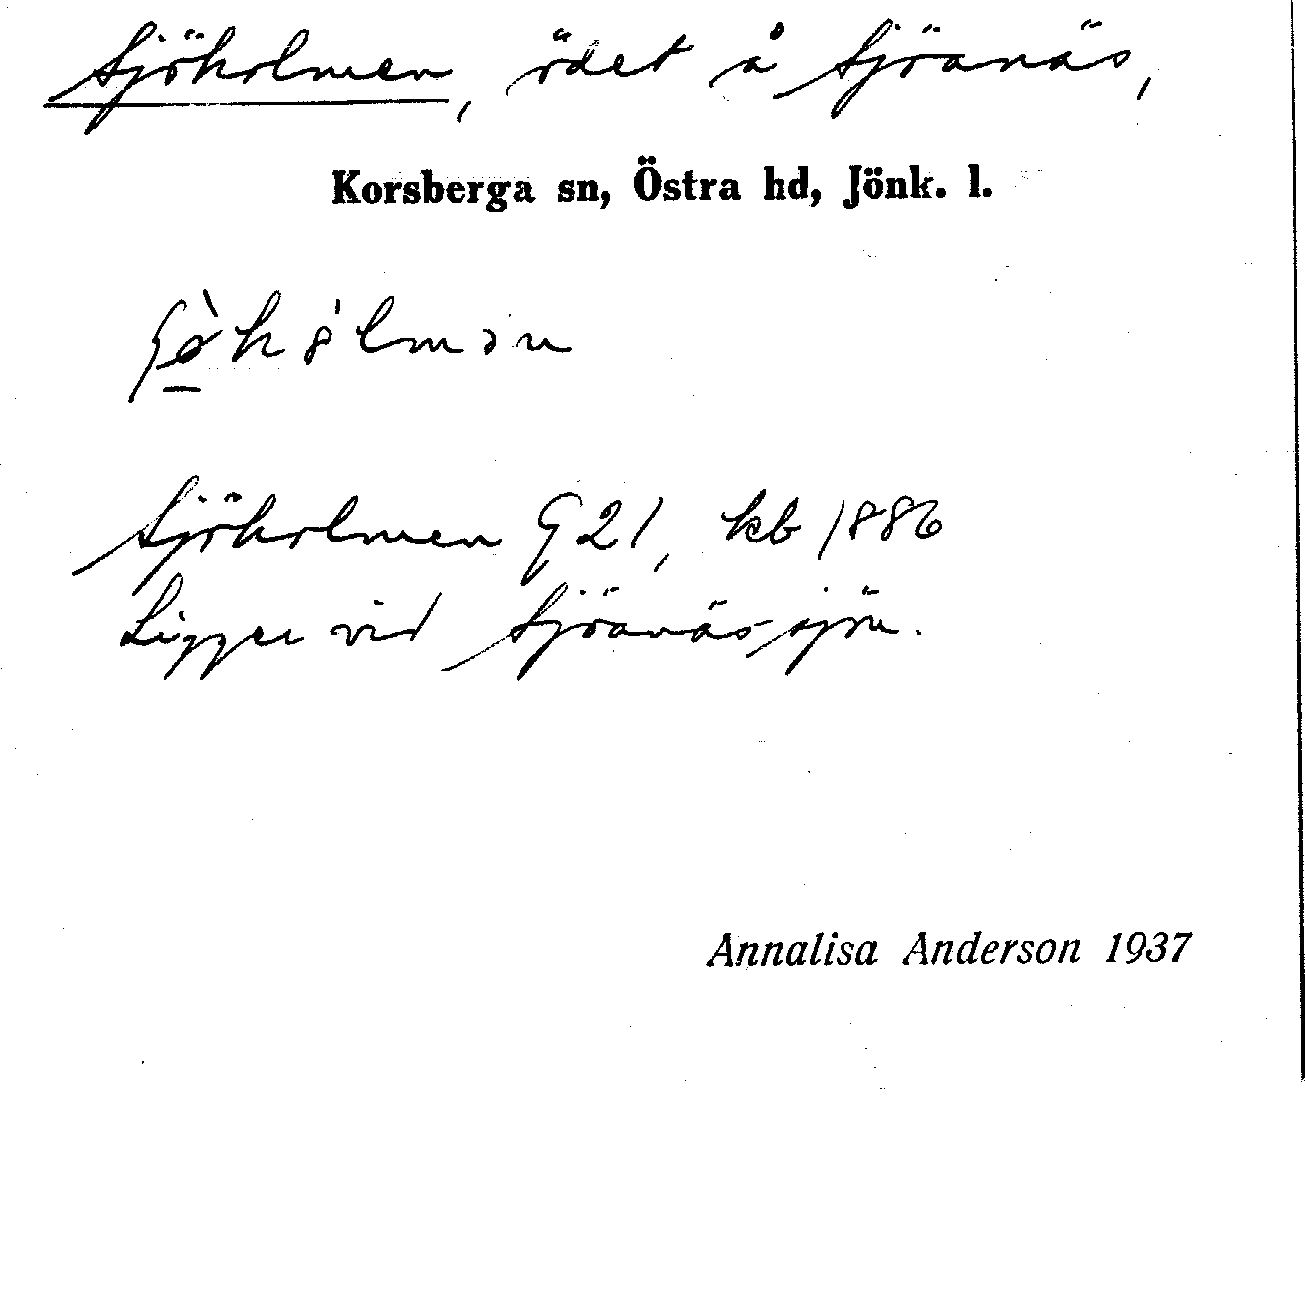 Sjöholmen, ödet å Sjöanäs,
Korsberga sn, Östra hd, Jönk. l.
Sjöholmen G 21, kb 1886
Ligger vid Sjöanässjön.
Annalisa Anderson 1937